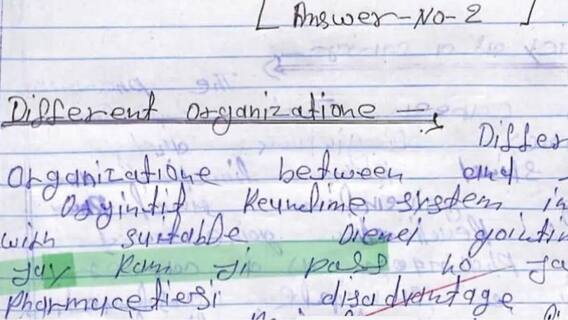 [ Answer-No-2 ]
Different organizatione →
Differ
organizatione between and
Keundime system in
with suitable Dienei
Jay Ram Ji pass ho Ja
pharmacetiesi disadvantage